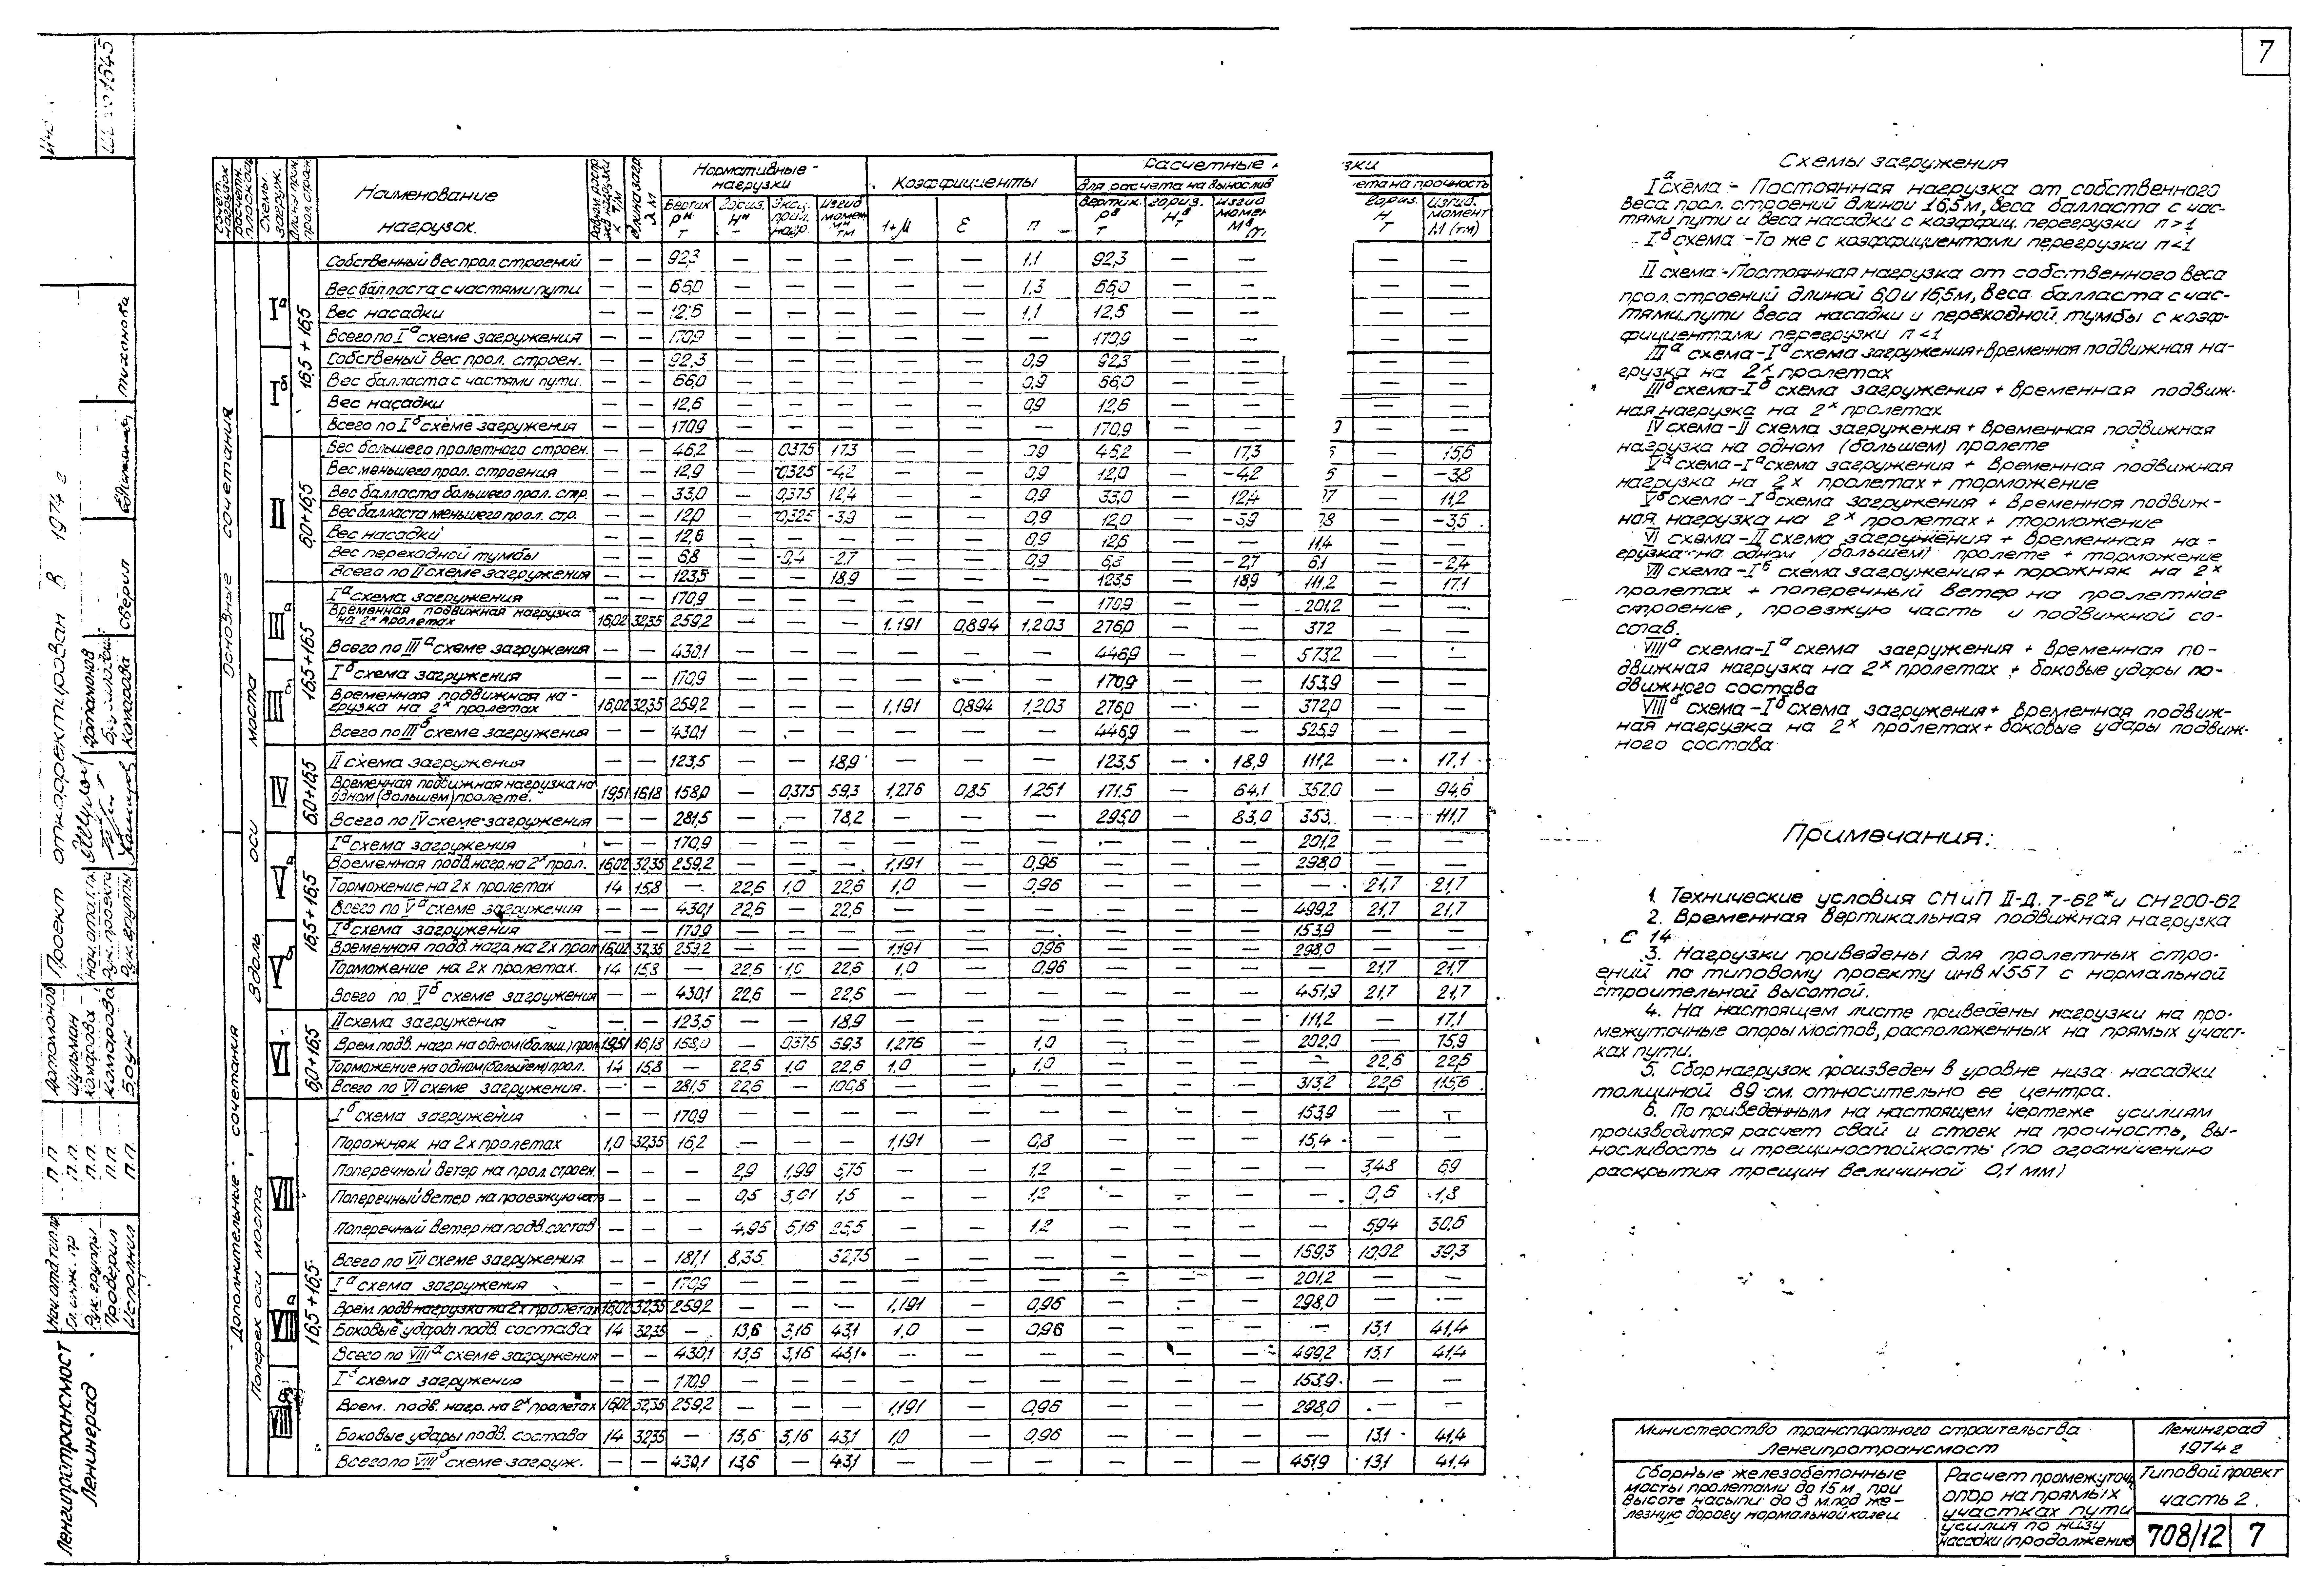 7
Нормативные нагрузки
Коэффициенты
Расчетные
Наименование нагрузок.
1+μ ε п
Собственный вес прол. строений — — 92,3 — — — — — 1.1 92,3 — —
Вес балласта с частями пути — — 66,0 — — — — — 1,3 66,0 — —
Вес насадки — — 12,6 — — — — — 1,1 12,6 — —
Всего по Iа схеме загружения — — 170,9 — — — — — — 170,9 — —
Собственый вес прол. строен. — — 92,3 — — — — — 0,9 92,3 — —
Вес балласта с частями пути. — — 66,0 — — — — — 0,9 66,0 — —
Вес насадки — — 12,6 — — — — — 0,9 12,6 — —
Всего по Iб схеме загружения — — 170,9 — — — — — — 170,9 — —
Вес большего пролетного строен. — — 46,2 — 0,375 17,3 — — 0,9 46,2 — 17,3 — 15,6
Вес меньшего прол. строения — — 12,9 — -0,325 -4,2 — — 0,9 12,9 — -4,2 — -3,8
Вес балласта большего прол. стр. — — 33,0 — 0,375 12,4 — — 0,9 33,0 — 12,4 — 11,2
Вес балласта меньшего прол. стр. — — 12,0 — -0,325 -3,9 — — 0,9 12,0 — -3,9 — -3,5
Вес насадки — — 12,6 — — — — — 0,9 12,6 — — 11,4 — —
Вес переходной тумбы — — 6,8 — -0,4 -2,7 — — 0,9 6,8 — -2,7 6,1 — -2,4
Всего по II схеме загружения — — 123,5 — — 18,9 — — — 123,5 — 18,9 111,2 — 17,1
Iа схема загружения — — 170,9 — — — — — — 170,9 — — 201,2 — —
Временная подвижная нагрузка на 2х пролетах 16,02 32,35 259,2 — — — 1.191 0,894 1,203 276,0 — — 372 — —
Всего по IIIа схеме загружения — — 430,1 — — — — — — 446,9 — — 573,2 — —
Iб схема загружения — — 170,9 — — — — — — 170,9 — — 153,9 — —
Временная подвижная нагрузка на 2х пролетах 16,02 32,35 259,2 — — — 1,191 0,894 1,203 276,0 — — 372,0 — —
Всего по IIIб схеме загружения — — 430,1 — — — — — — 446,9 — — 525,9 — —
II схема загружения — — 123,5 — — 18,9 — — — 123,5 — 18,9 111,2 — 17,1
Временная подвижная нагрузка на одном (большем) пролете. 19,51 16,18 158,0 — 0,375 59,3 1,276 0,85 1,251 171,5 — 64,1 352,0 — 94,6
Всего по IV схеме загружения — — 281,5 — — 78,2 — — — 295,0 — 83,0 353, — 111,7
Iа схема загружения — — 170,9 — — — — — — — — — 201,2 — —
Временная подв. нагр. на 2х прол. 16,02 32,35 259,2 — — — 1,191 — 0,96 — — — 298,0 — —
Торможение на 2х пролетах 14 15,8 — 22,6 1,0 22,6 1,0 — 0,96 — — — — 21,7 21,7
Всего по Vа схеме загружения — — 430,1 22,6 — 22,6 — — — — — — 499,2 21,7 21,7
Iб схема загружения — — 170,9 — — — — — — — — — 153,9 — —
Временная подв. нагр. на 2х прол 16,02 32,35 259,2 — — — 1,191 — 0,96 — — — 298,0 — —
Торможение на 2х пролетах. 14 15,8 — 22,6 1,0 22,6 1,0 — 0,96 — — — — 21,7 21,7
Всего по Vб схеме загружения — — 430,1 22,6 — 22,6 — — — — — — 451,9 21,7 21,7
II схема загружения — — 123,5 — — 18,9 — — — — — — 111,2 — 17,1
Врем. подв. нагр. на одном (больш.) прол 19,51 16,18 158,0 — 0,375 59,3 1,276 — 1,0 — — — 202,0 — 75,9
Торможение на одном (большем) прол. 14 15,8 — 22,6 1,0 22,6 1,0 — 1,0 — — — — 22,6 22,6
Всего по VI схеме загружения. — — 281,5 22,6 — 100,8 — — — — — — 313,2 22,6 115,6
Iб схема загружения — — 170,9 — — — — — — — — — 153,9 — —
Порожняк на 2х пролетах 1,0 32,35 16,2 — — — 1,191 — 0,8 — — — 15,4 — —
Поперечный ветер на прол. строен. — — — 2,9 1,99 5,75 — — 1,2 — — — — 3,48 6,9
Поперечный ветер на проезжую часть — — — 0,5 3,01 1,5 — — 1,2 — — — — 0,6 1,8
Поперечный ветер на подв. состав — — — 4,95 5,16 25,5 — — 1.2 — — — — 5,94 30,6
Всего по VII схеме загружения — — 187,1 8,35 32,75 — — — — — — 169,3 10,02 39,3
Iа схема загружения — — 170,9 — — — — — — — — — 201,2 — —
Врем. подв нагрузка на 2х пролетах 16,02 32,35 259,2 — — — 1,191 — 0,96 — — — 298,0 — —
Боковые удары подв. состава 14 32,35 — 13,6 3,16 43,1 1,0 — 0,96 — — — — 13,1 41,4
Всего по VIIIа схеме загружения — — 430,1 13,6 3,16 43,1 — — — — — — 499,2 13,1 41,4
Iб схема загружения — — 170,9 — — — — — — — — — 153,9 — —
Врем. подв. нагр. на 2х пролетах 16,02 32,35 259,2 — — — 1,191 — 0,96 — — — 298,0 — —
Боковые удары подв. состава 14 32,35 — 13,6 3,16 43,1 1,0 — 0,96 — — — — 13,1 41,4
Всего по VIIIб схеме загруж. — — 430,1 13,6 — 43,1 — — — — — — 451,9 13,1 41,4
Основные сочетания
Дополнительные сочетания
Вдоль оси моста
Поперек оси моста
Схемы загружения
Iа схема - Постоянная нагрузка от собственного
веса прол. строений длиной 16,5м, веса балласта с час-
тями пути и веса насадки с коэффиц. перегрузки п>1
Iб схема - То же с коэффициентами перегрузки п<1
II схема - Постоянная нагрузка от собственного веса
прол. строений длиной 6,0 и 16,5м, веса балласта с час-
тями пути веса насадки и переходной тумбы с коэф-
фициентами перегрузки п<1
IIIа схема - Iа схема загружения + временная подвижная на-
грузка на 2х пролетах
IIIб схема - Iб схема загружения + временная подвиж-
ная нагрузка на 2х пролетах
IV схема - II схема загружения + временная подвижная
нагрузка на одном (большем) пролете
Vа схема - Iа схема загружения + временная подвижная
нагрузка на 2х пролетах + торможение
Vб схема - Iб схема загружения + временная подвиж-
ная нагрузка на 2х пролетах + торможение
VI схема - II схема загружения + временная на-
грузка на одном (большем) пролете + торможение
VII схема - Iб схема загружения + порожняк на 2х
пролетах + поперечный ветер на пролетное
строение, проезжую часть и подвижной со-
став.
VIIIа схема - Iа схема загружения + временная по-
движная нагрузка на 2х пролетах + боковые удары по-
движного состава
VIIIб схема - Iб схема загружения + временная подвиж-
ная нагрузка на 2х пролетах + боковые удары подвиж-
ного состава
Примечания:
1. Технические условия СНиП II-Д. 7-62* и СН 200-62
2. Временная вертикальная подвижная нагрузка
С 14
3. Нагрузки приведены для пролетных стро-
ений по типовому проекту инв N 557 с нормальной
строительной высотой.
4. На настоящем листе приведены нагрузки на про-
межуточные опоры мостов, расположенных на прямых участ-
ках пути.
5. Сбор нагрузок произведен в уровне низа насадки
толщиной 89 см. относительно ее центра.
6. По приведенным на настоящем чертеже усилиям
производится расчет свай и стоек на прочность, вы-
носливость и трещиностойкость (по ограничению
раскрытия трещин величиной 0,1 мм)
Министерство транспортного строительства
Ленгипротрансмост
Ленинград
1974 г
Сборные железобетонные
мосты пролетами до 15 м при
высоте насыпи до 8 м. под же-
лезную дорогу нормальной колеи
Расчет промежуточ.
опор на прямых
участках пути
усилия по низу
насадки (продолжение)
Типовой проект
часть 2.
708/12
7
Проект откорректирован в 1974 г
Ленгипротрансмост
Ленинград
Нач. отд. типпр.
Гл. инж. пр
Рук. группы
Проверил
Исполнил
п.п
п.п
п.п.
п.п.
п.п
Артамонов
Шульман
Комарова
Комарова
Боук